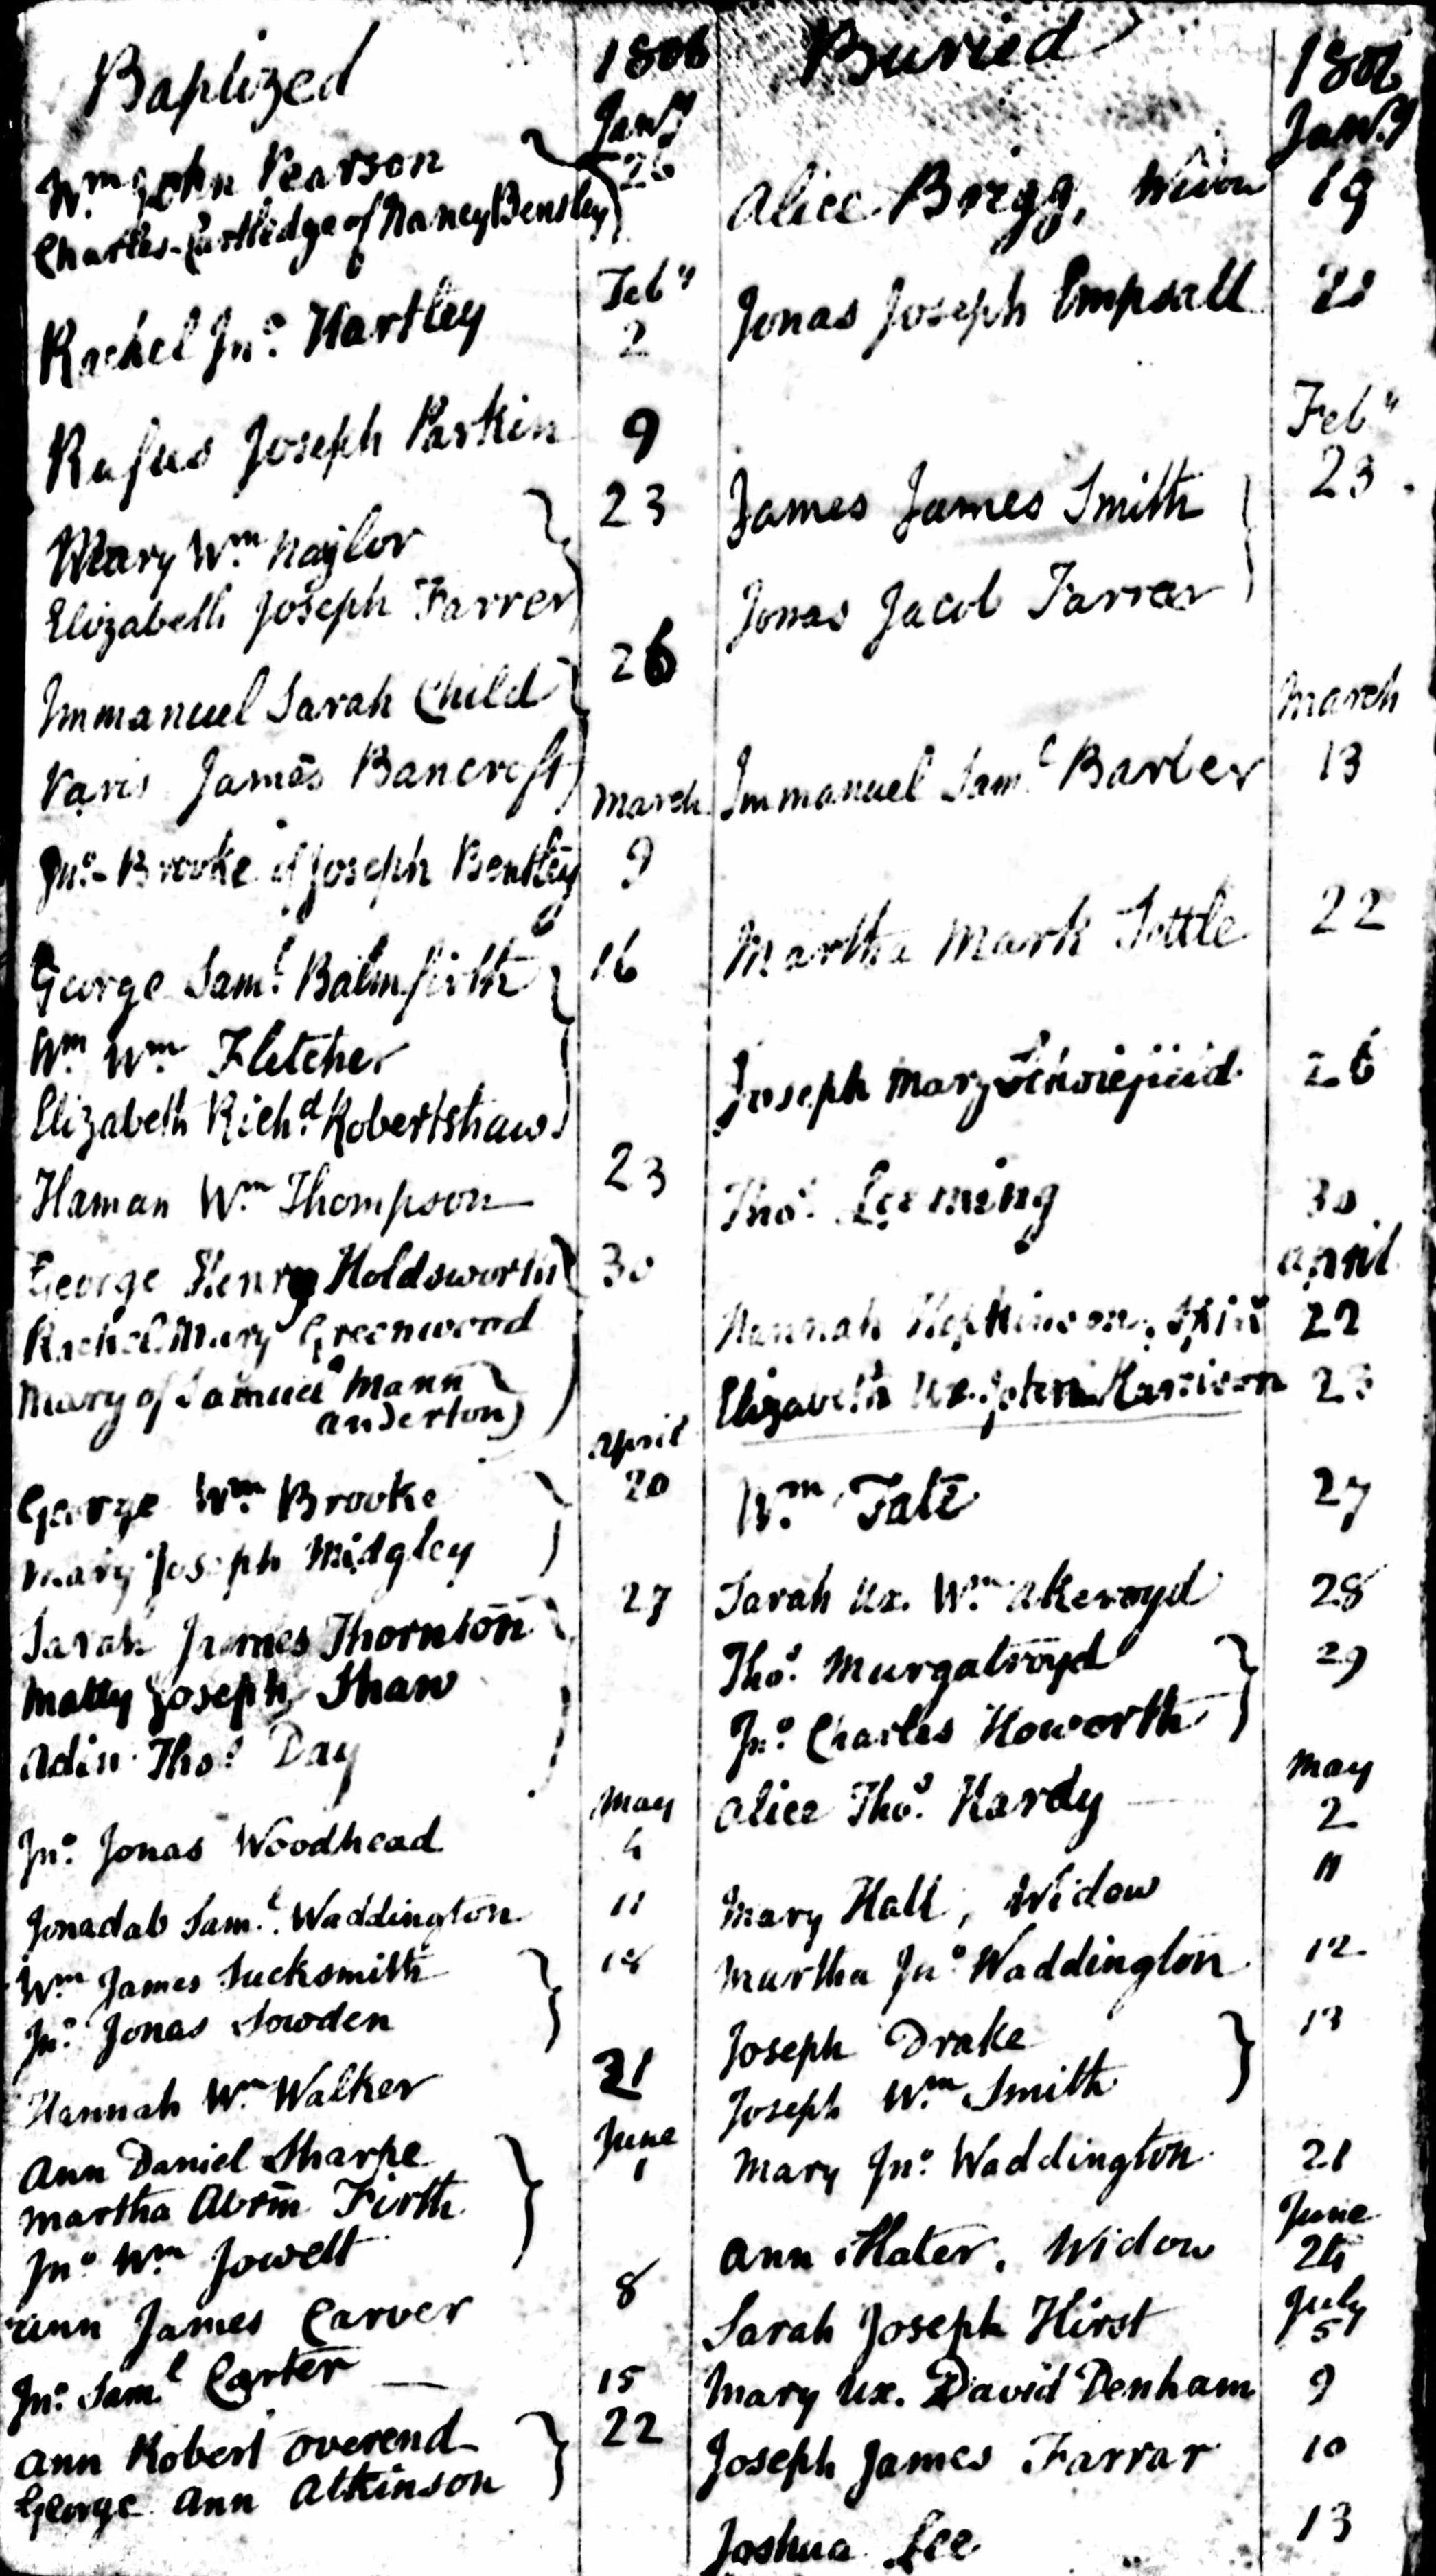 Baptized
1806
Jany
Wm John Pearson
26
Charles Cartledge of Nancy Bensley
Feby
Rachel Jno. Hartley
2
Rufus Joseph Parkin
9
Mary Wm Naylor
23
Elizabeth Joseph Farrer
Immanuel Sarah Child
26
Paris James Bancroft
March
Jno. Brooke of Joseph Bentley
9
George Saml. Balmfirth
16
Wm Wm Fletcher
Elizabeth Richd. Robertshaw
Haman Wm Thompson
23
George Henry Holdsworth
30
Rachel Mary Greenwood
Mary of Samuel Mann
anderton
April
George Wm Brooke
20
Mary Joseph Midgley
Sarah James Thornton
27
Matty Joseph Shaw
Adin Thos. Day
May
Jno. Jonas Woodhead
4
Jonadab Saml. Waddington
11
Wm James Sucksmith
18
Jno. Jonas Sowden
Hannah Wm Walker
21
June
Ann Daniel Sharpe
1
Martha Abrm Firth
Jno Wm Jowett
Ann James Carver
8
Jno. Saml Carter
15
Ann Robert Overend
22
George Ann Atkinson
Buried
1806
Jany
Alice Brigg, Widow
19
Jonas Joseph Empsall
Feby
James James Smith
23.
Jonas Jacob Farrar
March
Immanuel Saml Barber
13
Martha Mark Settle
22
Joseph Mary
26
Thos. Leeming
30
April
Hannah Hopkinson, Spinr
22
Elizabeth Ux. John Harrison
23
Wm Tate
27
Sarah Ux. Wm Akeroyd
28
Thos. Murgatroyd
29
Jno. Charles Howorth
May
Alice Thos. Hardy
2
Mary Hall, Widow
11
Martha Jno Waddington
12
Joseph Drake
13
Joseph Wm Smith
Mary Jno. Waddington
21
June
Ann Slater, Widow
24
July
Sarah Joseph Hirst
5
Mary Ux. David Denham
9
Joseph James Farrar
10
Joshua Lee
13